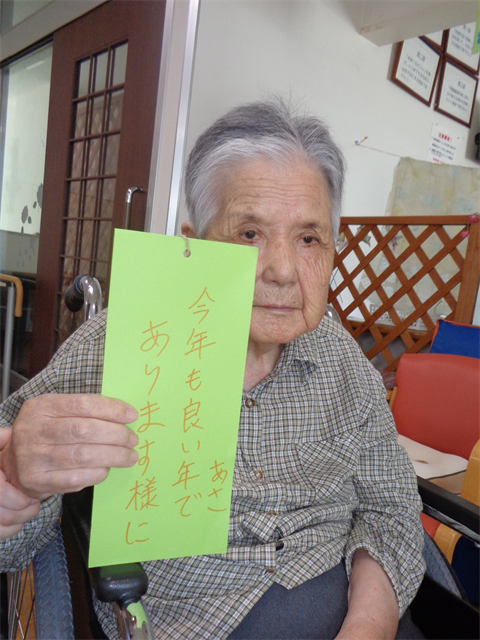 今年も良い年で
あります様に
あさ